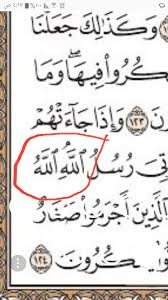 وَكَذَٰلِكَ جَعَلْنَا
كُرُوا۟ فِيهَا ۖ وَمَا
١٢٣ وَإِذَا جَآءَتْهُمْ
تِىَ رُسُلُ ٱللَّهِ ۘ ٱللَّهُ
ٱلَّذِينَ أَجْرَمُوا۟ صَغَارٌ
كُرُونَ ١٢٤